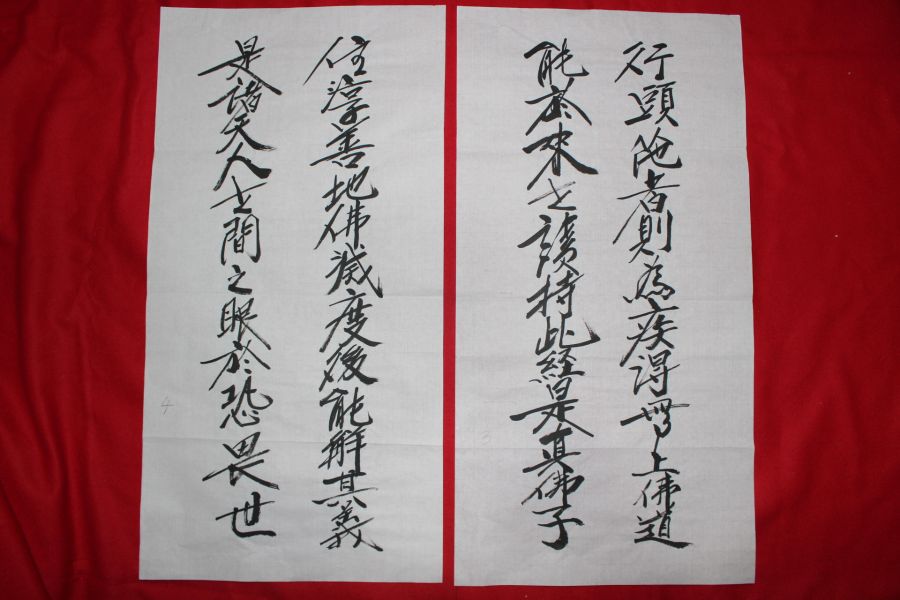 行頭陁者則為疾得無上佛道
能於来世讀持此経是真佛子
住淳善地佛滅度後能解其義
是諸天人世間之眼於恐畏世
3
4